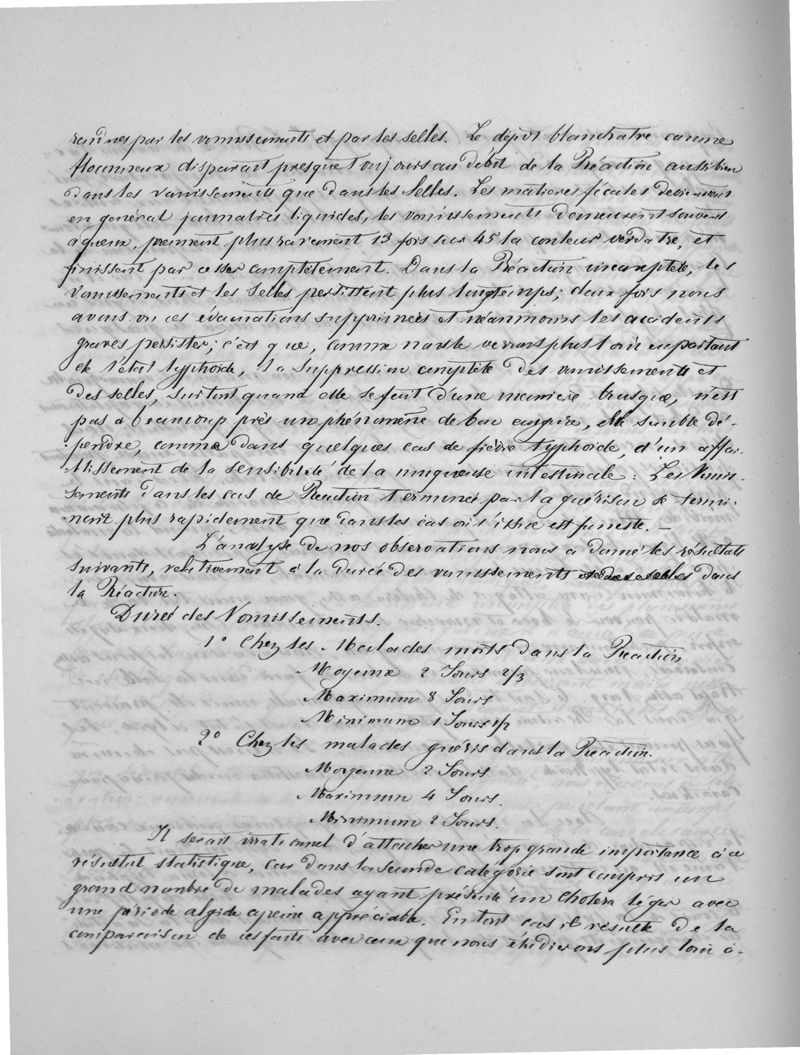 rendues par les vomissements et par les selles. Le dépôt blanchatre comme
floconneux disparait presque toujours au début de la Réaction aussi bien
dans les vomissements que dans les selles. Les matières fécales deviennent
en général jaunatres liquides, les vomissements demeurent souvent
aqueux, prennent plus rarement 13 fois sur 45 la couleur verdatre, et
finissent par cesser complètement. Dans la Réaction incomplète, les
vomissements et les selles persistent plus longtemps; deux fois nous
avons vu ces évacuations supprimées et néanmoins les accidents
graves persister; c'est que, comme nous le verrons plus loin en parlant
de l'état typhoïde, la suppression complète des vomissements et
des selles, surtout quand elle se fait d'une manière brusque, n'est
pas à beaucoup près un phénomène de bon augure, elle semble dé-
pendre, comme dans quelques cas de fièvre typhoïde, d'un affai-
blissement de la sensibilité de la muqueuse intestinale: Les Vomis-
sements dans les cas de Réaction terminés par la guérison se termi-
nent plus rapidement que dans les cas où l'issue est funeste. —
L'analyse de nos observations nous a donné les résultats
suivants, relativement à la durée des vomissements et des selles dans
la Réaction.
Durée des Vomissements.
1º Chez les Malades morts dans la Réaction
Moyenne 2 Jours 2/3
Maximum 8 Jours
Minimum 1 Jours 1/2
2º Chez les malades guéris dans la Réaction.
Moyenne 2 Jours
Maximum 4 Jours.
Minimum 2 Jours.
Il serait irrationnel d'attacher une trop grande importance à ce
résultat statistique, car dans la seconde catégorie sont compris un
grand nombre de malades ayant présenté un Choléra léger avec
une période algide à peine appréciable. En tout cas il résulte de la
comparaison de ces faits avec ceux que nous étudierons plus loin à-